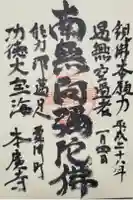 平成二十八年
一月四日
観佛本願力
遇無空過者
南無阿彌陀佛
能令速満足
功徳大宝海
本慶寺